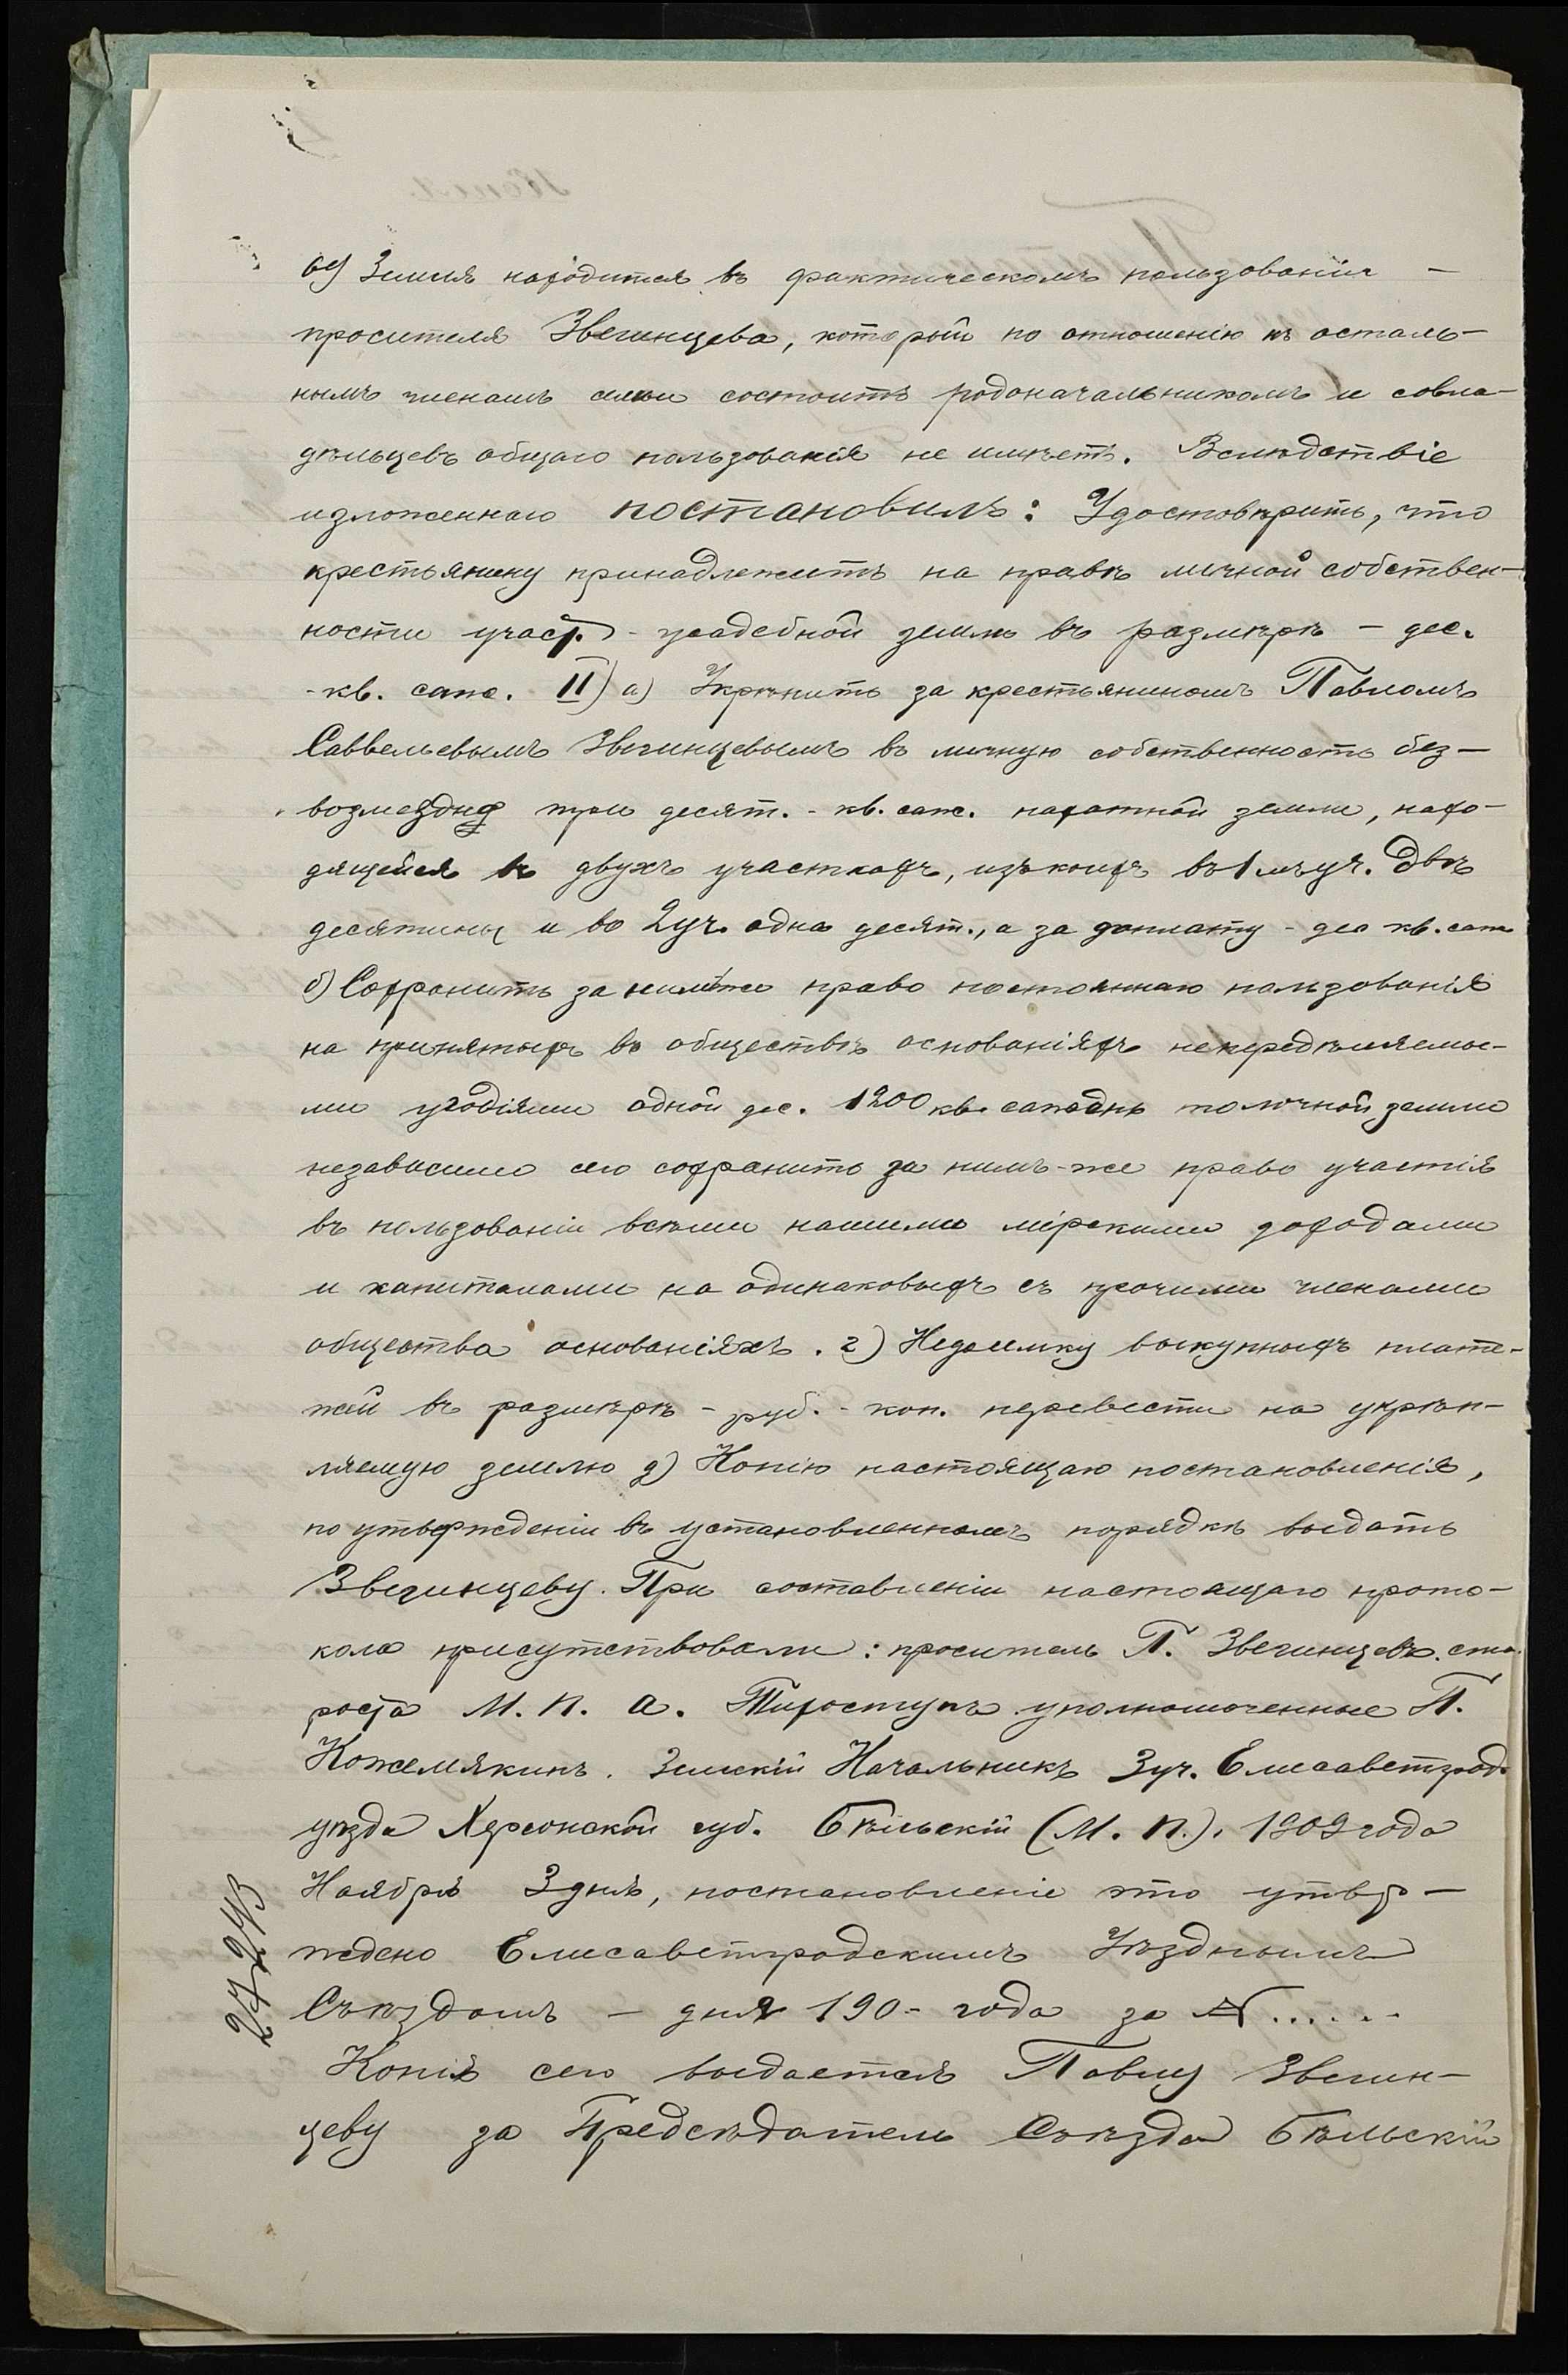 6) Земля находится въ фактическомъ пользованіи —
просителя Звегинцева, который по отношенію къ осталь-
нымъ членамъ семьи состоитъ родоначальникомъ и совла-
дѣльцевъ общаго пользованія не имѣетъ. Вслѣдствіе
изложеннаго постановилъ: Удостовѣрить, что
крестьянину принадлежитъ на правѣ личной собствен-
ности участ. - усадебной земли въ размѣрѣ — дес.
- кв. саж. II) а) Укрѣпить за крестьяниномъ Павломъ
Саввельевымъ Звегинцевымъ въ личную собственность без-
возмездно три десят. - кв. саж. пахатной земли, нахо-
дящейся въ двухъ участкахъ, изъ коихъ въ 1 мъ уч. двѣ
десятины и во 2 уч. одна десят., а за доплату - дес кв. саж
б) Сохранить за нимъ же право постояннаго пользованія
на принятыхъ въ обществѣ основаніяхъ непередѣляемы-
ми угодіями одной дес. 1200 кв. сажень толочной земли
независимо сего сохранить за нимъ-же право участія
въ пользованіи всѣми нашими мірскими доходами
и капиталами на одинаковыхъ съ прочими членами
общества основаніяхъ. г) Недоимку выкупныхъ плате-
жей въ размѣрѣ - руб. - коп. перевести на укрѣп-
ляемую землю д) Копію настоящаго постановленія,
по утвержденіи въ установленномъ порядкѣ выдать
Звегинцеву. При составленіи настоящаго прото-
кола присутствовали: проситель П. Звегинцевъ. ста-
роста М. П. А. уполномоченные П.
Кожемякинъ. Земскій Начальникъ 3 уч. Елисаветград.
уѣзда Херсонской губ. Бѣльскій (М. П.). 1909 года
Ноября 3 дня, постановленіе это утвер-
ждено Елисаветградскимъ Уѣзднымъ
Съѣздомъ — дня 190- года за № ......
Копія сего выдается Павлу Звегин-
цеву за Предсѣдатель Съѣзда Бѣльскій